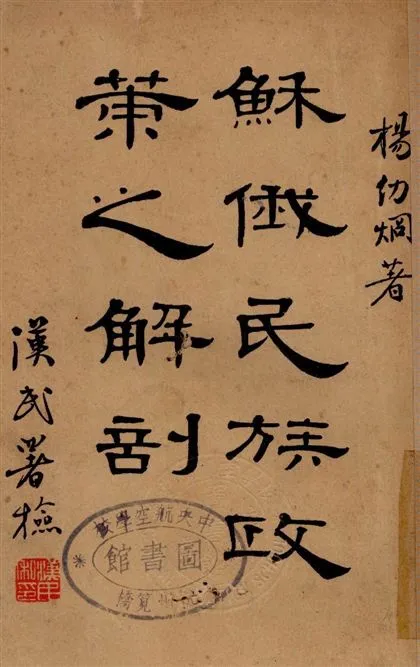 楊幼炯著
穌俄民族政
策之解剖
漢民署檢
中央航空學校
圖書館
杭州筧橋